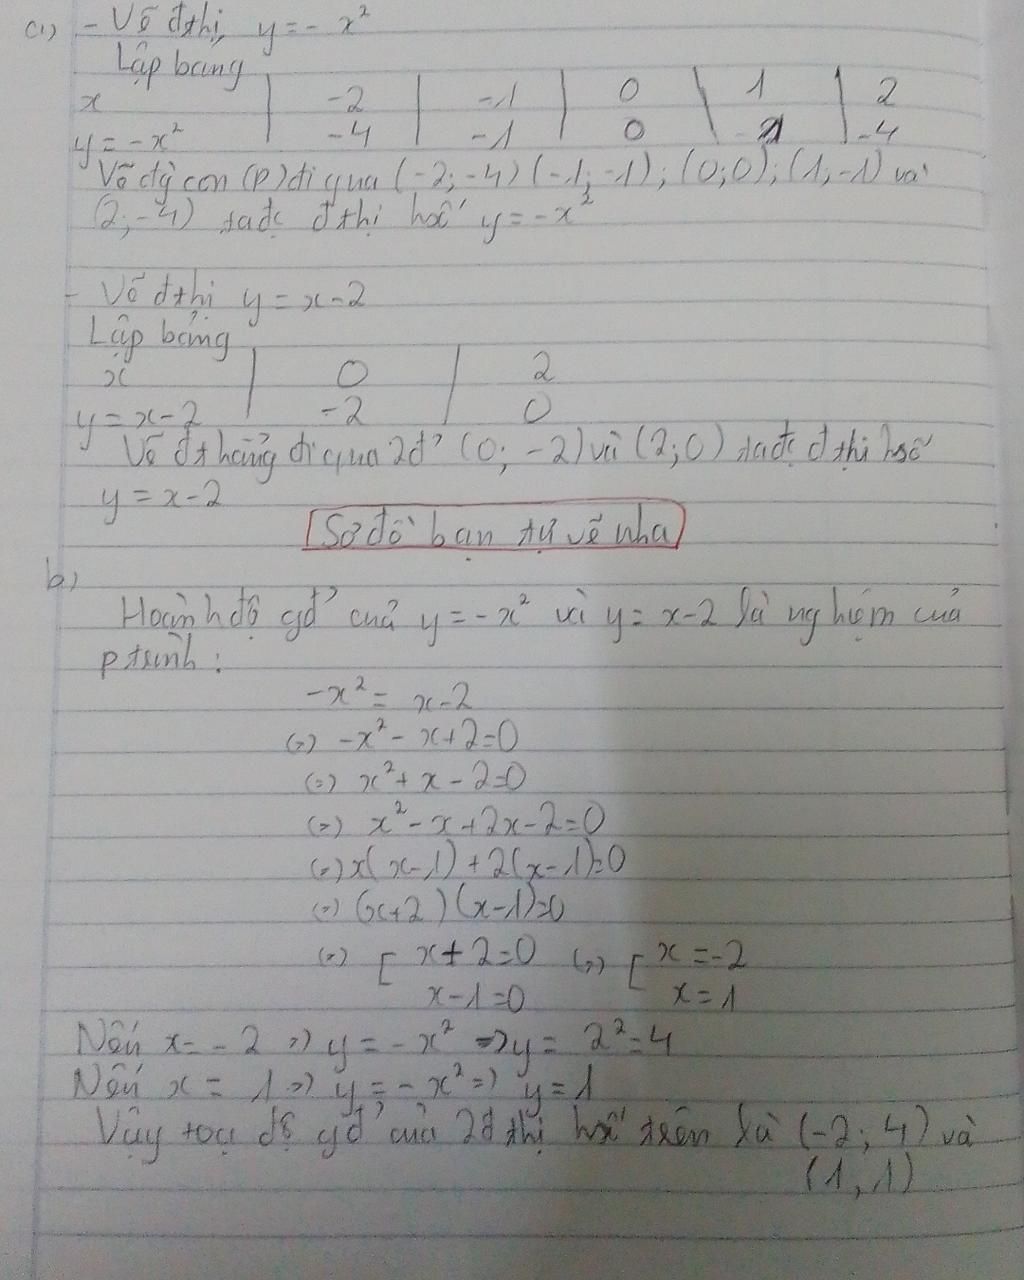 a) - Vẽ đthị y = - x²
Lập bảng
x | -2 | -1 | 0 | 1 | 2
y = -x² | -4 | -1 | 0 | -1 | -4
Vẽ đg con (P) đi qua (-2; -4) (-1; -1); (0;0); (1,-1) và
(2; -4) ta đc đ thị hsố y = -x²
- Vẽ đ thị y = x-2
Lập bảng
x | 0 | 2
y = x-2 | -2 | 0
Vẽ đ thẳng đi qua 2đ' (0; -2) và (2; 0) ta đc đ thị hsố
y = x-2
Sơ đồ bạn tự vẽ nha
b)
Hoành độ gđ' của y = -x² và y = x-2 là nghiệm của
p trình:
-x² = x-2
(=) -x² - x+2=0
(=) x² + x - 2=0
(=) x² - x + 2x - 2=0
(=) x(x-1) + 2(x-1)=0
(=) (x+2)(x-1)=0
(=) [ x+2=0 (=) [ x = -2
x-1=0 x = 1
Nếu x = -2 => y = -x² => y = 2² = 4
Nếu x = 1 => y = -x² => y = 1
Vậy toạ độ gđ' của 2 đ thị hsố trên là (-2; 4) và
(1,1)